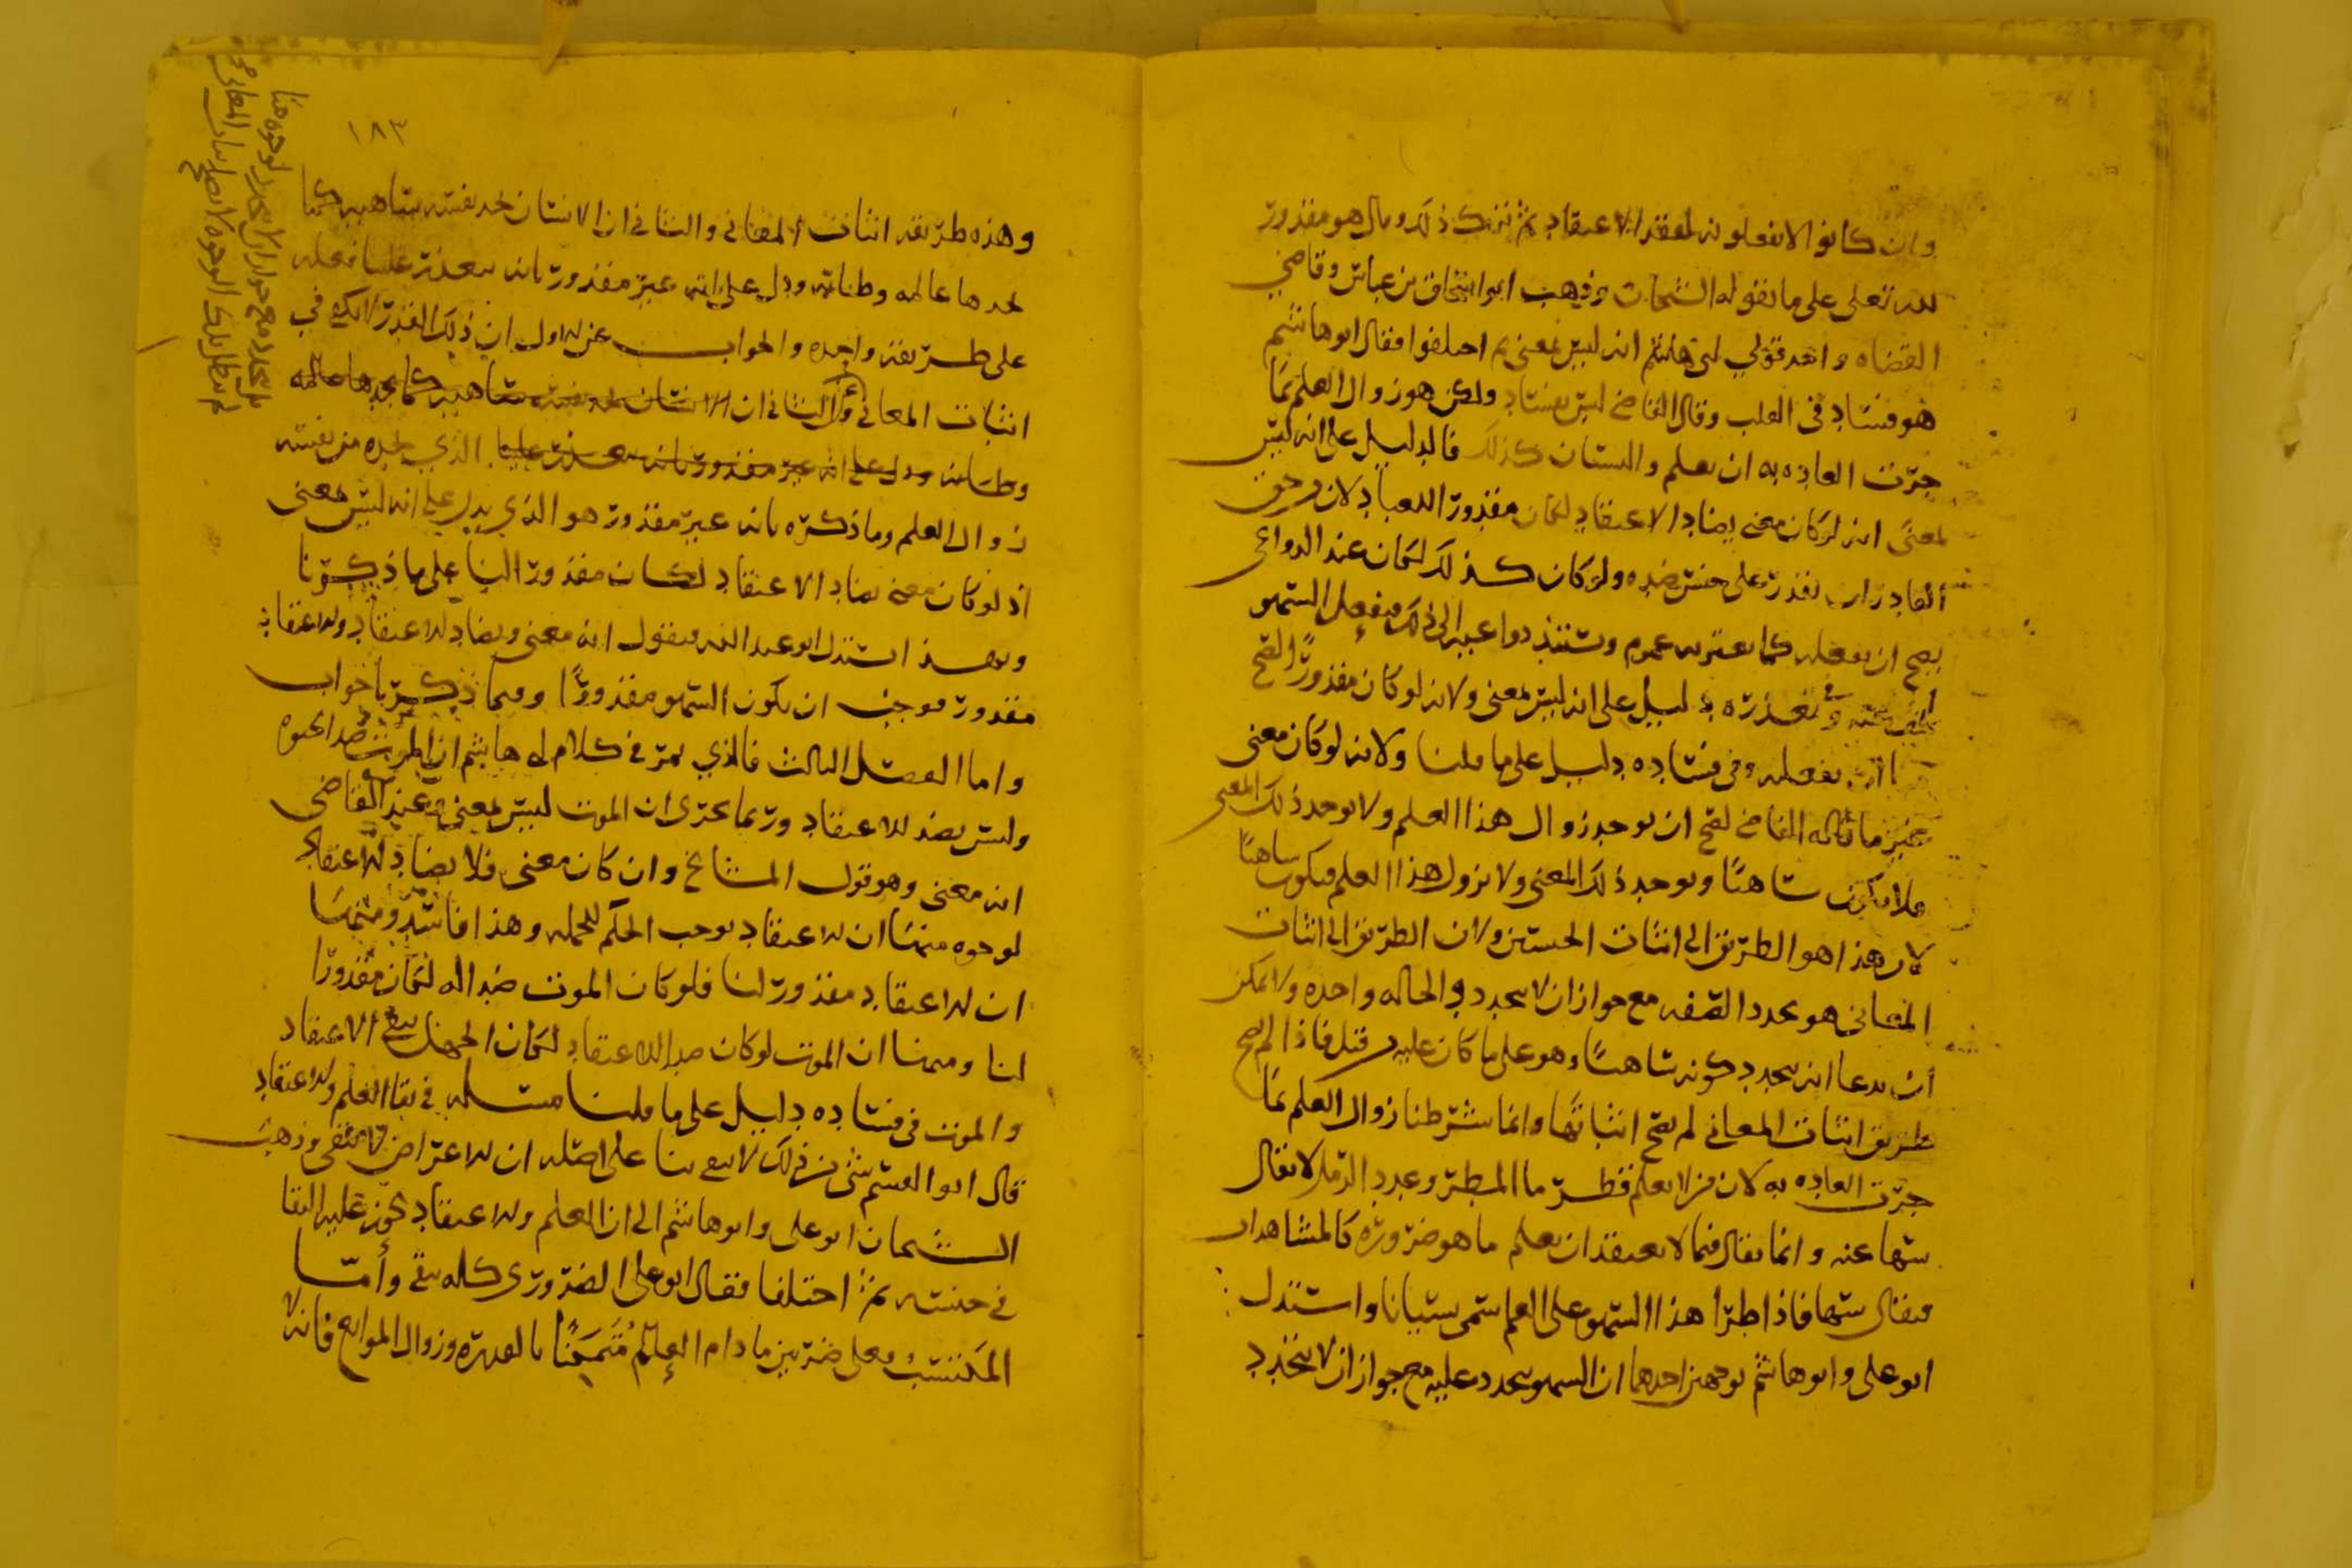 وان كانوا لا يفعلونه لفقد الاعتقاد ثم نترك ذلك وقال هو مقدور
لله تعلى على ما يقوله الشيخان وذهب ابو اسحاق بن عياش وقاضي
القضاه واحد قولي ابي هاشم انه ليس بمعنى ثم اختلفوا فقال ابو هاشم
هو فساد في القلب وقال القاضي ليس بفساد ولكن هو زوال العلم بما
جرت العاده به ان يعلم والنسيان كذلك فالدليل على انه ليس
لمعنى انه لو كان معنى يضاد الاعتقاد لكان مقدورا للعباد لان من حق
القادر ان يقدر على جنس ضده ولو كان كذلك لكان عند الدواعي
يصح ان يفعله كما يعتريه غموم وتشتد دواعيه الى ذلك فيفعل السهو
وفي تعذره دليل على انه ليس بمعنى ولانه لو كان مقدورا لقح
ان يفعله وفي فساده دليل على ما قلنا ولانه لو كان معنى
غير ما قاله القاضي لصح ان يوجد زوال هذا العلم ولا يوجد ذلك المعنى
فلا يكون ساهيا ويوجد ذلك المعنى ولا يزول هذا العلم فيكون ساهيا
لان هذا هو الطريق الى اثبات الجنسين ولان الطريق الى اثبات
المعاني هو تجدد الصفه مع جواز ان لا تتجدد والحاله واحده ولا يمكن
ان يدعا انه يتجدد كونه ساهيا وهو على ما كان عليه من قبل فاذا لم يصح
طريق اثبات المعاني لم يصح اثباتها وانما شرطنا زوال العلم بما
جرت العاده به لان من لا يعلم قطر ما المطر وعدد الرمل لا يقال
سها عنه وانما يقال فيما لا يعتقد ان يعلم ما هو ضروره كالمشاهدات
فيقال سها فاذا طرا هذا السهو على العلم سمي نسيانا واستدل
ابو علي وابو هاشم بوجهين احدهما ان السهو يتجدد عليه مع جواز ان لا يتجدد
١٨٣
وهذه طريقه اثبات المعاني والثاني ان الانسان يجد نفسه ساهيه كما
يجدها عالمه وظانه ودل على انه غير مقدور بانه يتعذر علينا فعله
على طريقه واحده والجواب عن الاول ان ذلك القدر لا يكفي في
اثبات المعاني وعن الثاني ان الانسان يجد نفسه ساهيه كما يجدها عالمه
وظانه ودل على انه غير مقدور بانه يتعذر علينا الذي يجده من نفسه
زوال العلم وما ذكره بانه غير مقدور هو الذي يدل على انه ليس لمعنى
اذ لو كان معنى يضاد الاعتقاد لكان مقدورا لنا على ما ذكرنا
وبهذا استدل ابو عبد الله فيقول انه معنى ويضاد الاعتقاد والاعتقاد
مقدور فوجب ان يكون السهو مقدورا وفيما ذكرنا جواب
واما الفصل الثالث فالذي يمر في كلام ابي هاشم ان الموت ضد الحيوه
وليس بضد للاعتقاد وربما يجري ان الموت ليس بمعنى وعند القاضي
انه معنى وهو قول المشايخ وان كان معنى فلا يضاد الاعتقاد
لوجوه منها ان الاعتقاد يوجب الحكم للجمله وهذا فاسد ومنها
ان الاعتقاد مقدور لنا فلو كان الموت ضدا له لكان مقدورا
لنا ومنها ان الموت لو كان ضدا للاعتقاد لكان الجهل ينفي الاعتقاد
والموت في فساده دليل على ما قلنا مسله في بقا العلم والاعتقاد
قال ابو القسم شي من ذلك لا يبقى بنا على اصله ان الاعراض لا تبقى وذهب
الشيخان ابو علي وابو هاشم الى ان العلم والاعتقاد يجوز عليه البقا
في جنسه ثم اختلفا فقال ابو علي الضروري كله يبقى وأما
المكتسب فعلى ضربين ما دام العالم مُتَمَكِنًا بالقدره وزوال الموانع فانه لا